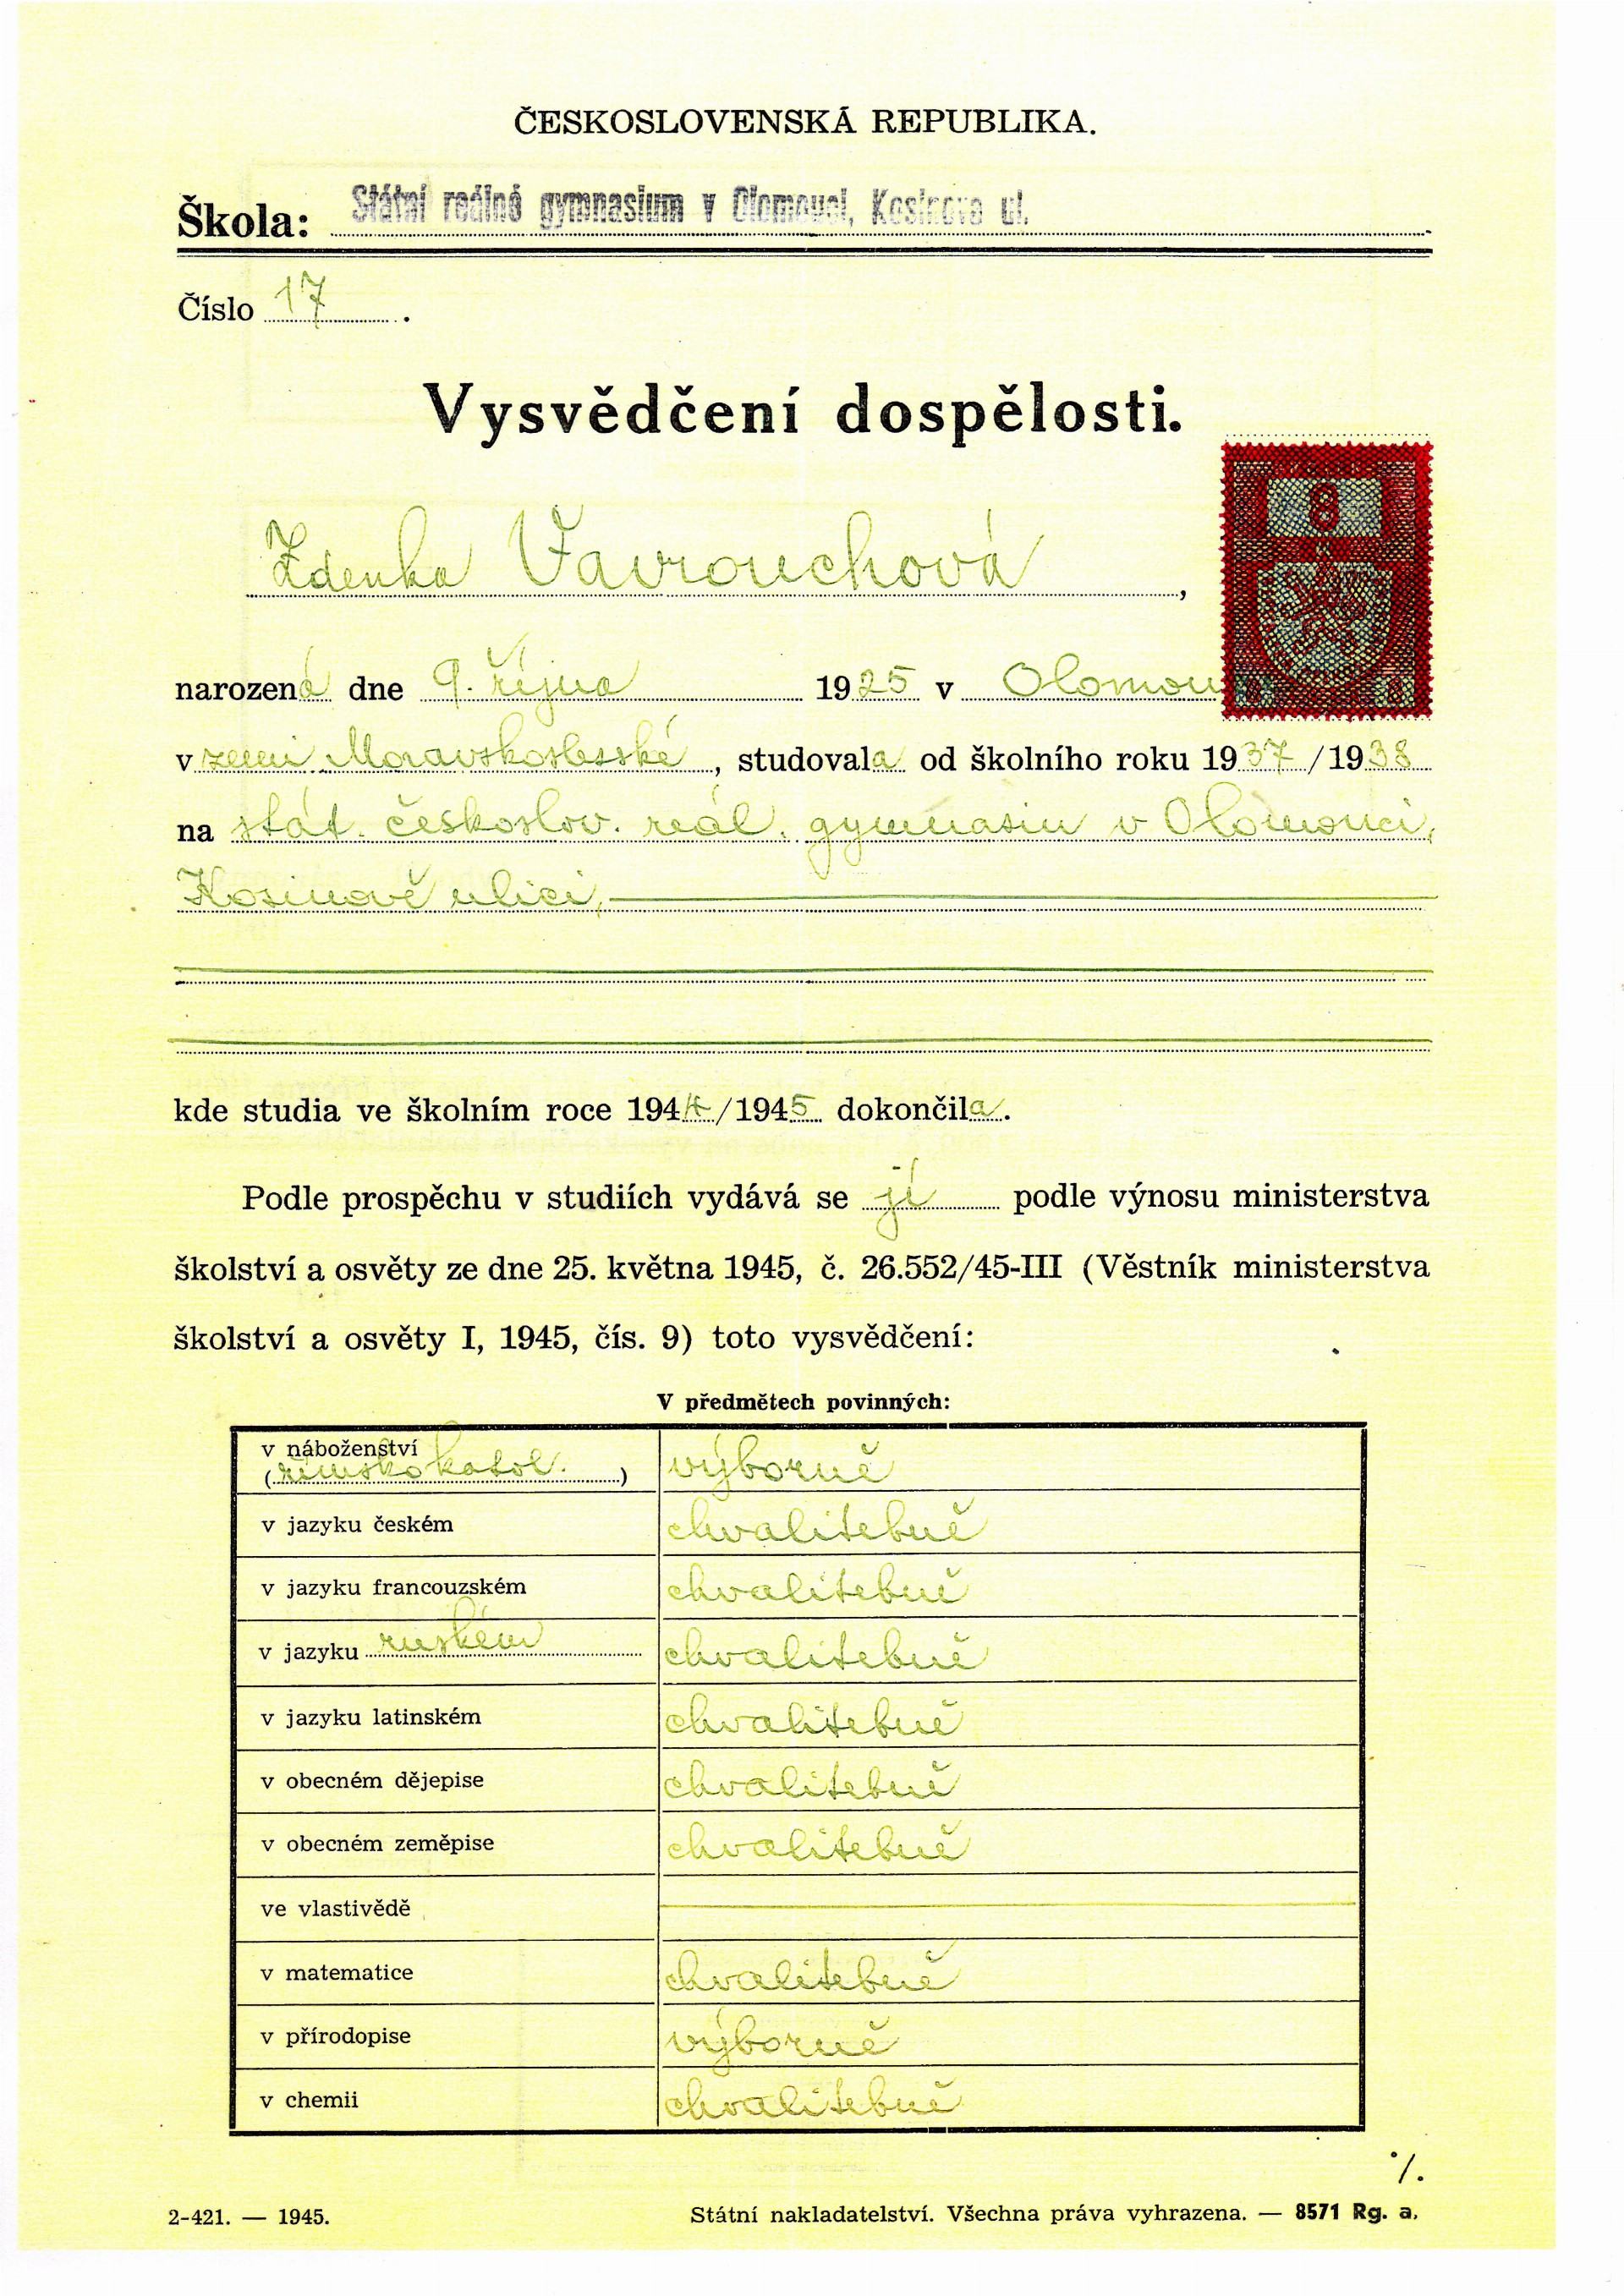 ČESKOSLOVENSKÁ REPUBLIKA.
Škola: Státní reálné gymnasium v Olomouci, Kosinova ul.
Číslo 17.
Vysvědčení dospělosti.
Zdenka Vavrouchová,
8
narozená dne 9. října 1925 v Olomou
8 8
v zemi Moravskoslesské, studovala od školního roku 1937/1938
na stát. českoslov. reál. gymnasiu v Olomouci,
Kosinově ulici,
kde studia ve školním roce 1944/1945 dokončila.
Podle prospěchu v studiích vydává se jí podle výnosu ministerstva
školství a osvěty ze dne 25. května 1945, č. 26.552/45-III (Věstník ministerstva
školství a osvěty I, 1945, čís. 9) toto vysvědčení:
V předmětech povinných:
v náboženství
(římskokatol.) výborně
v jazyku českém chvalitebně
v jazyku francouzském chvalitebně
v jazyku ruském chvalitebně
v jazyku latinském chvalitebně
v obecném dějepise chvalitebně
v obecném zeměpise chvalitebně
ve vlastivědě
v matematice chvalitebně
v přírodopise výborně
v chemii chvalitebně
./.
2-421. — 1945. Státní nakladatelství. Všechna práva vyhrazena. — 8571 Rg. a.